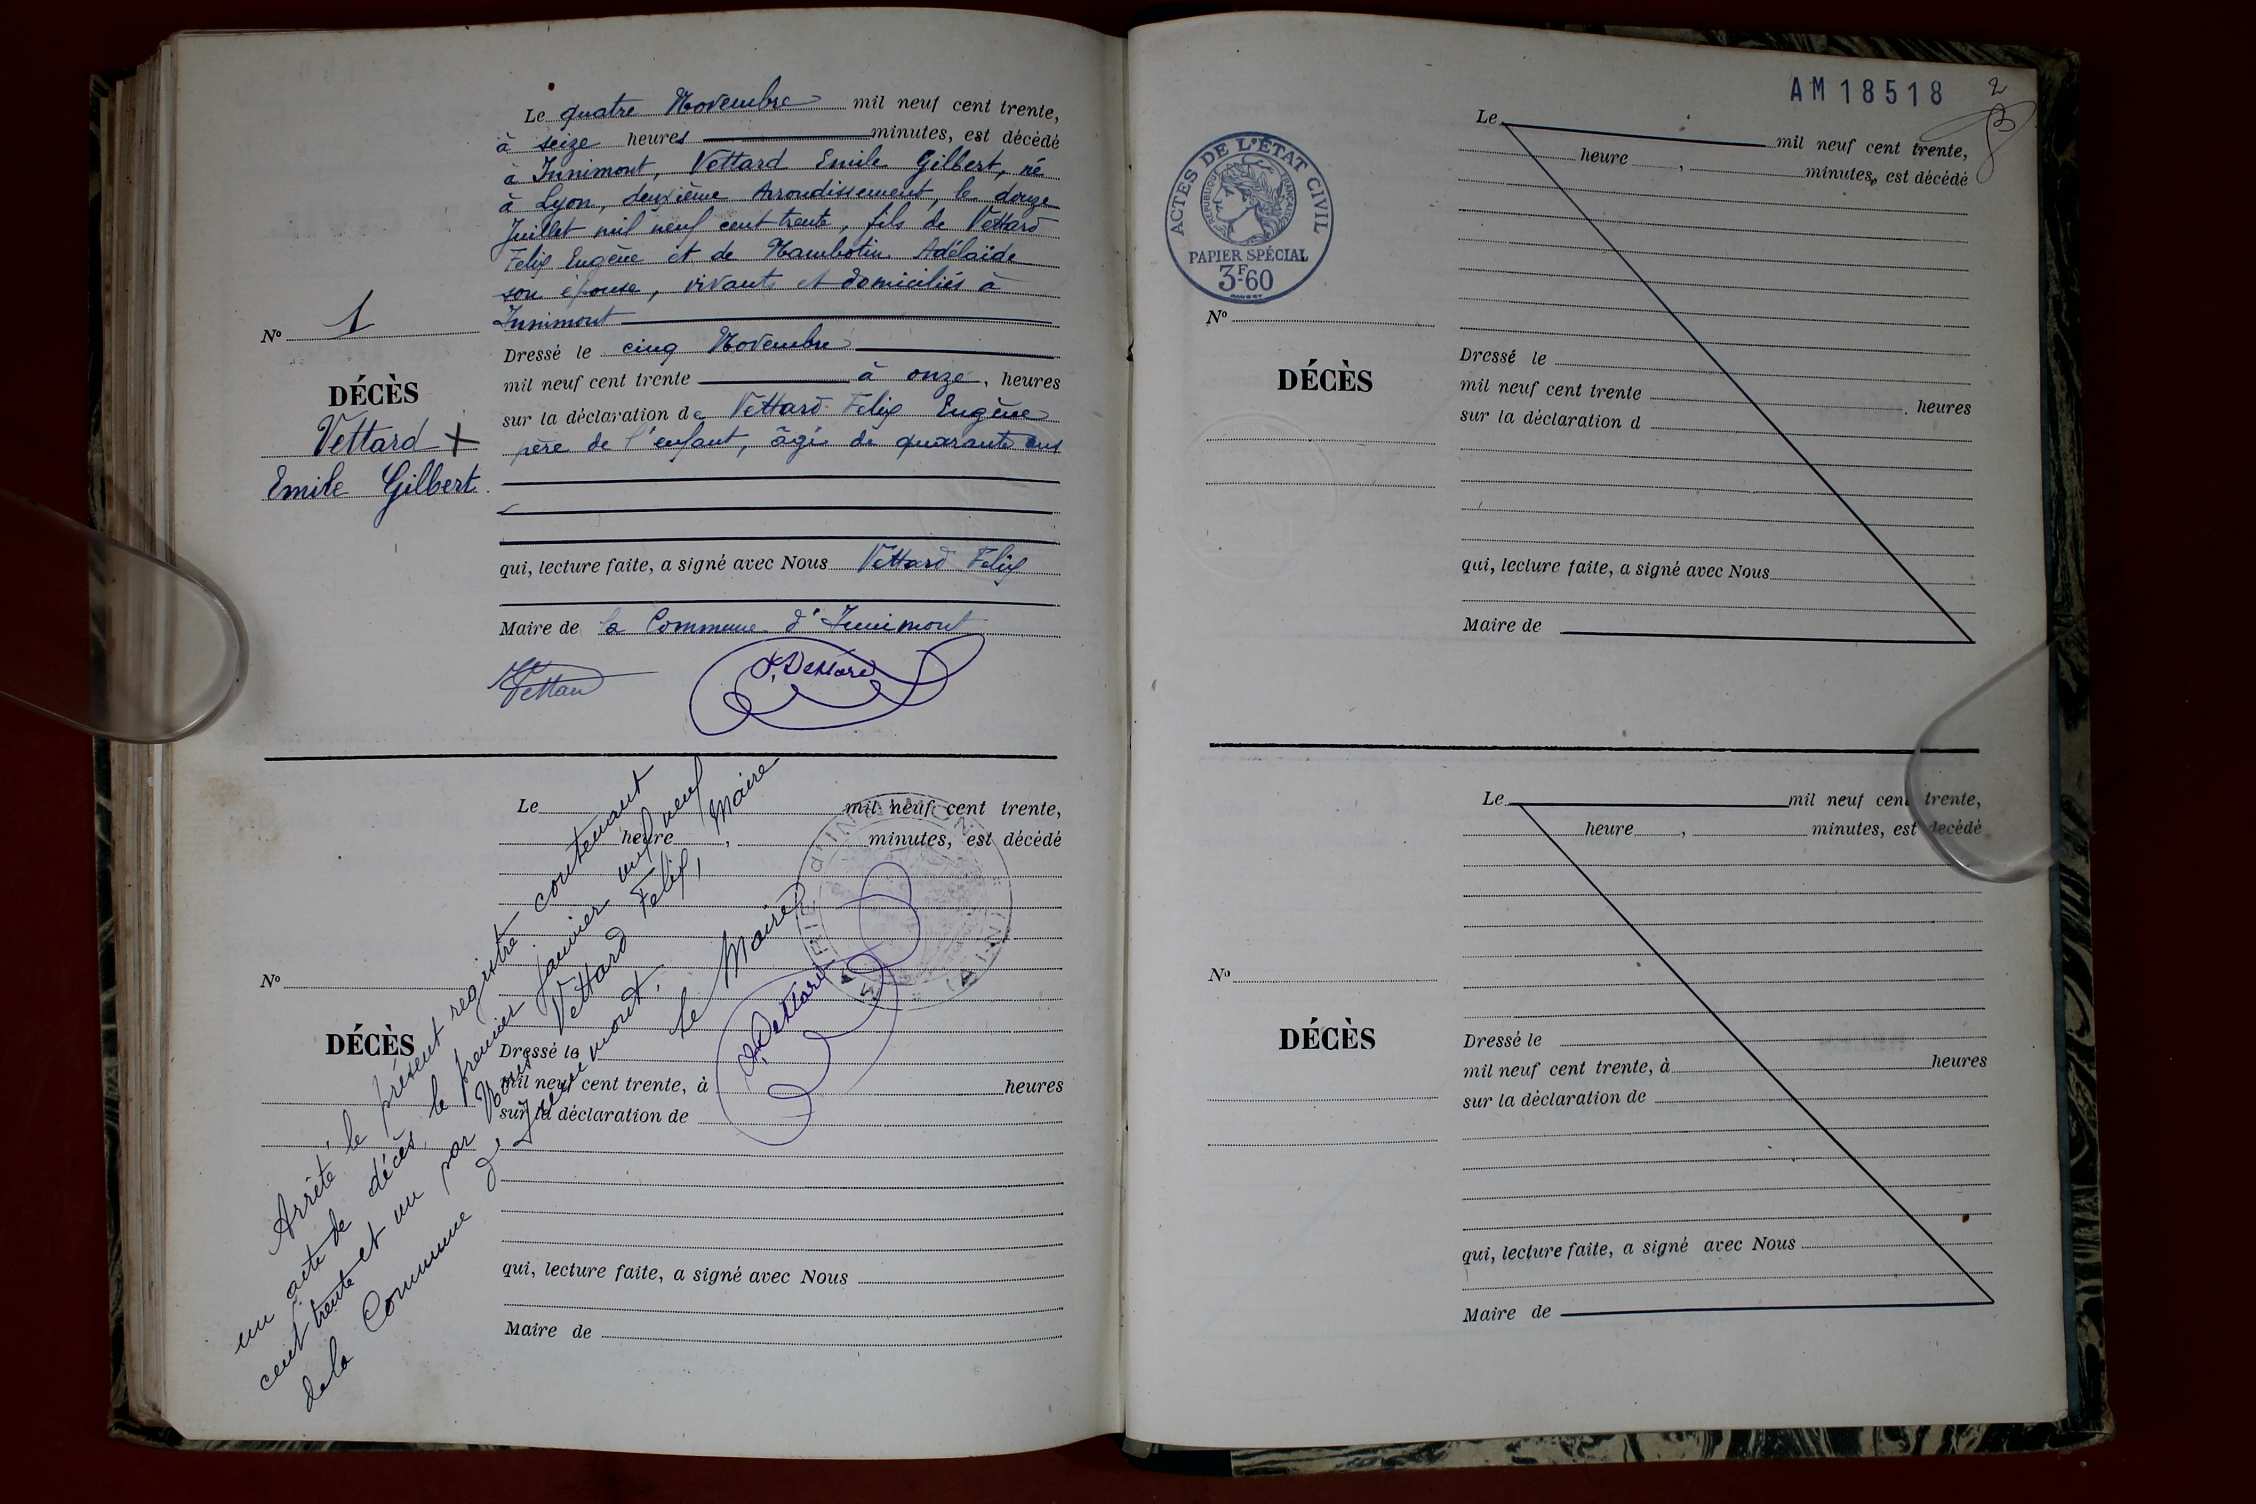 Le quatre Novembre mil neuf cent trente,
à seize heures minutes, est décédé
à Innimont, Vettard Emile Gilbert, né
à Lyon, deuxième Arrondissement, le douze
Juillet mil neuf cent trente, fils de Vettard
Felix Eugène et de Mambotin Adélaïde
son épouse, vivants et domiciliés à
Innimont
Nº 1
Dressé le cinq Novembre
mil neuf cent trente à onze, heures
DÉCÈS
sur la déclaration de Vettard Felix Eugène
Vettard +
père de l'enfant, âgé de quarante ans
Emile Gilbert.
qui, lecture faite, a signé avec Nous Vettard Felix
Maire de la Commune d'Innimont
Vettard
F. Vettard
Le mil neuf cent trente,
heure , minutes, est décédé
Nº
DÉCÈS
Dressé le
mil neuf cent trente, à heures
sur la déclaration de
qui, lecture faite, a signé avec Nous
Maire de
Arrêté le présent registre contenant
un acte de décès, le premier janvier mil neuf
cent trente et un par Nous Vettard Felix, Maire
de la Commune d'Innimont.
Le Maire
F. Vettard
MAIRIE d'INNIMONT
(AIN)
AM 18518
2
ACTES DE L'ÉTAT CIVIL
RÉPUBLIQUE FRANÇAISE
PAPIER SPÉCIAL
3F.60
Le mil neuf cent trente,
heure , minutes, est décédé
Nº
Dressé le
DÉCÈS
mil neuf cent trente . heures
sur la déclaration d
qui, lecture faite, a signé avec Nous
Maire de
Le mil neuf cent trente,
heure , minutes, est décédé
Nº
DÉCÈS
Dressé le
mil neuf cent trente, à heures
sur la déclaration de
qui, lecture faite, a signé avec Nous
Maire de